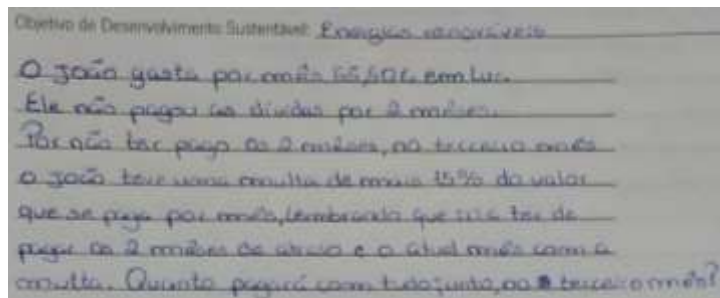 Objetivo de Desenvolvimento Sustentável: Energias renováveis
O João gasta por mês 65,50€ em luz.
Ele não pagou as dívidas por 2 mêses.
Por não ter pago os 2 mêses, no terceiro mês
o João teve uma multa de mais 15% do valor
que se paga por mês, lembrando que irá ter de
pagar os 2 mêses de atraso e o atual mês com a
multa. Quanto pagará com tudo junto, no terceiro mês?